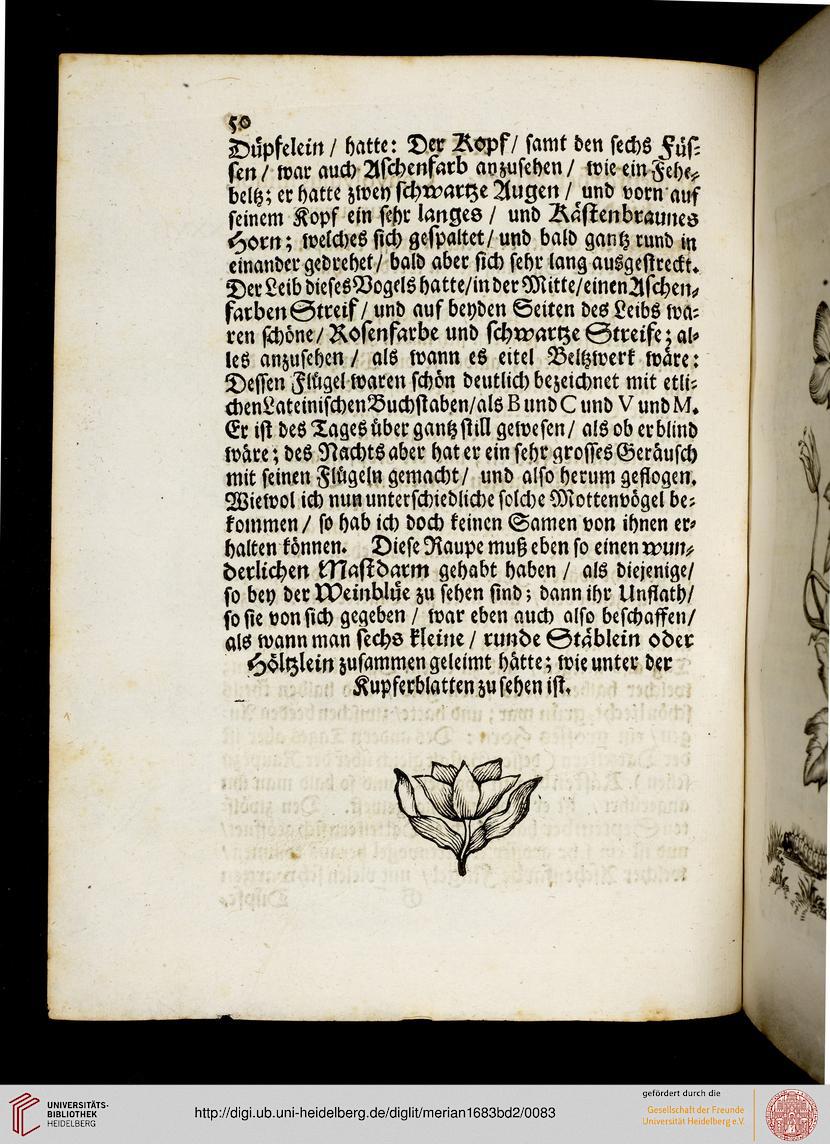 50
Düpfelein / hatte: Der Kopf / samt den sechs Füs-
sen / war auch Aschenfarb anzusehen / wie ein Fehe-
beltz; er hatte zwey schwartze Augen / und vorn auf
seinem Kopf ein sehr langes / und Kästenbraunes
Horn; welches sich gespaltet / und bald gantz rund in
einander gedrehet / bald aber sich sehr lang ausgestreckt.
Der Leib dieses Vogels hatte / in der Mitte / einen Aschen-
farben Streif / und auf beyden Seiten des Leibs wa-
ren schöne / Rosenfarbe und schwartze Streife; al-
les anzusehen / als wann es eitel Beltzwerk wäre:
Dessen Flügel waren schön deutlich bezeichnet mit etli-
chen Lateinischen Buchstaben / als B und C und V und M.
Er ist des Tages über gantz still gewesen / als ob er blind
wäre; des Nachts aber hat er ein sehr grosses Geräusch
mit seinen Flügeln gemacht / und also herum geflogen.
Wiewol ich nun unterschiedliche solche Mottenvögel be-
kommen / so hab ich doch keinen Samen von ihnen er-
halten können. Diese Raupe muß eben so einen wun-
derlichen Mastdarm gehabt haben / als diejenige /
so bey der Weinblüe zu sehen sind; dann ihr Unflath /
so sie von sich gegeben / war eben auch also beschaffen /
als wann man sechs kleine / runde Stäblein oder
Höltzlein zusammen geleimt hätte; wie unter der
Kupferblatten zu sehen ist.
UNIVERSITÄTS-
BIBLIOTHEK
HEIDELBERG
http://digi.ub.uni-heidelberg.de/diglit/merian1683bd2/0083
gefördert durch die
Gesellschaft der Freunde
Universität Heidelberg e.V.